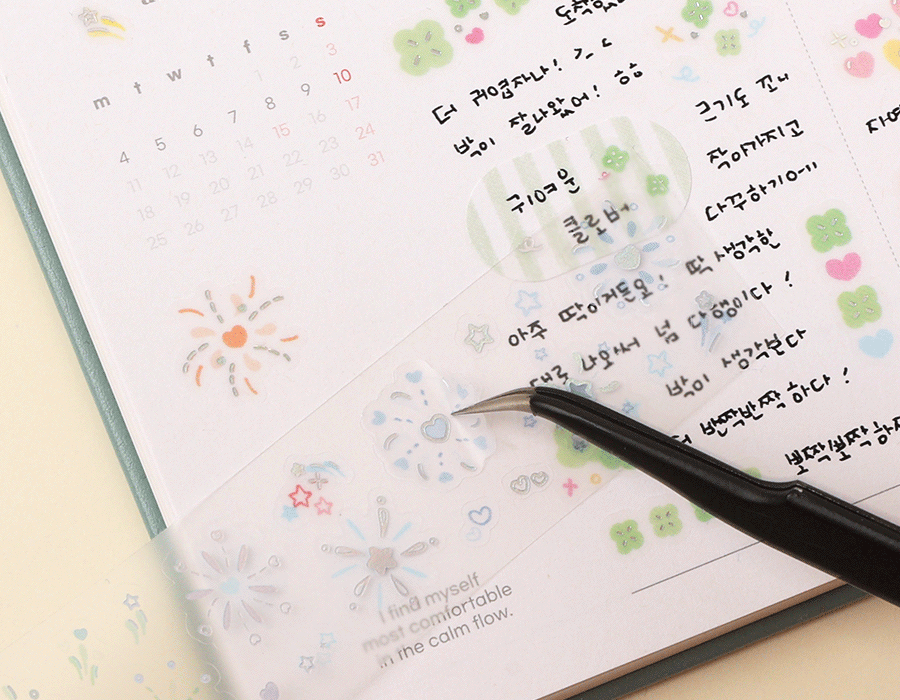 m t w t f s s
1 2 3
4 5 6 7 8 9 10
11 12 13 14 15 16 17
18 19 20 21 22 23 24
25 26 27 28 29 30 31
더 귀엽자나! >_<
박이 잘나왔어! ㅎㅎ
귀여운
클로버
아주 딱이거든요!
대로 나와서 넘 다행이다!
근기도 꼬
작아가지고
다꾸하기에
딱 생각한
박이 생각보다
더 반짝반짝하다!
뽀짝뽀짝하
I find myself
most comfortable
in the calm flow.